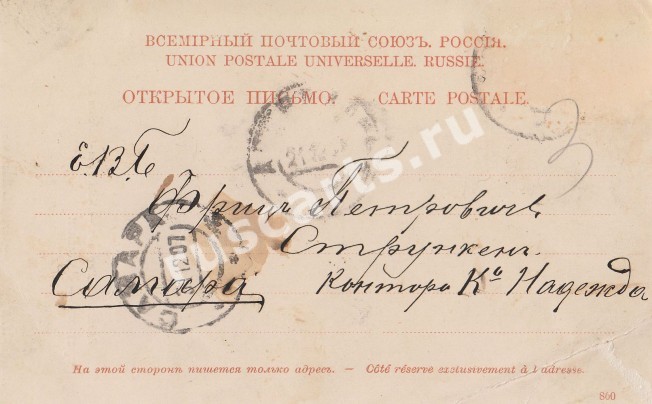 ВСЕМІРНЫЙ ПОЧТОВЫЙ СОЮЗЪ. РОССІЯ.
UNION POSTALE UNIVERSELLE. RUSSIE.
ОТКРЫТОЕ ПИСЬМО. CARTE POSTALE.
Е.В.Б
Фрицъ Петровичъ
Струкенъ
Самара Контора Ко Надежда
САМАРА
12 07
ruscarts.ru
На этой сторонѣ пишется только адресъ. — Côté réservé exclusivement à l'adresse.
800